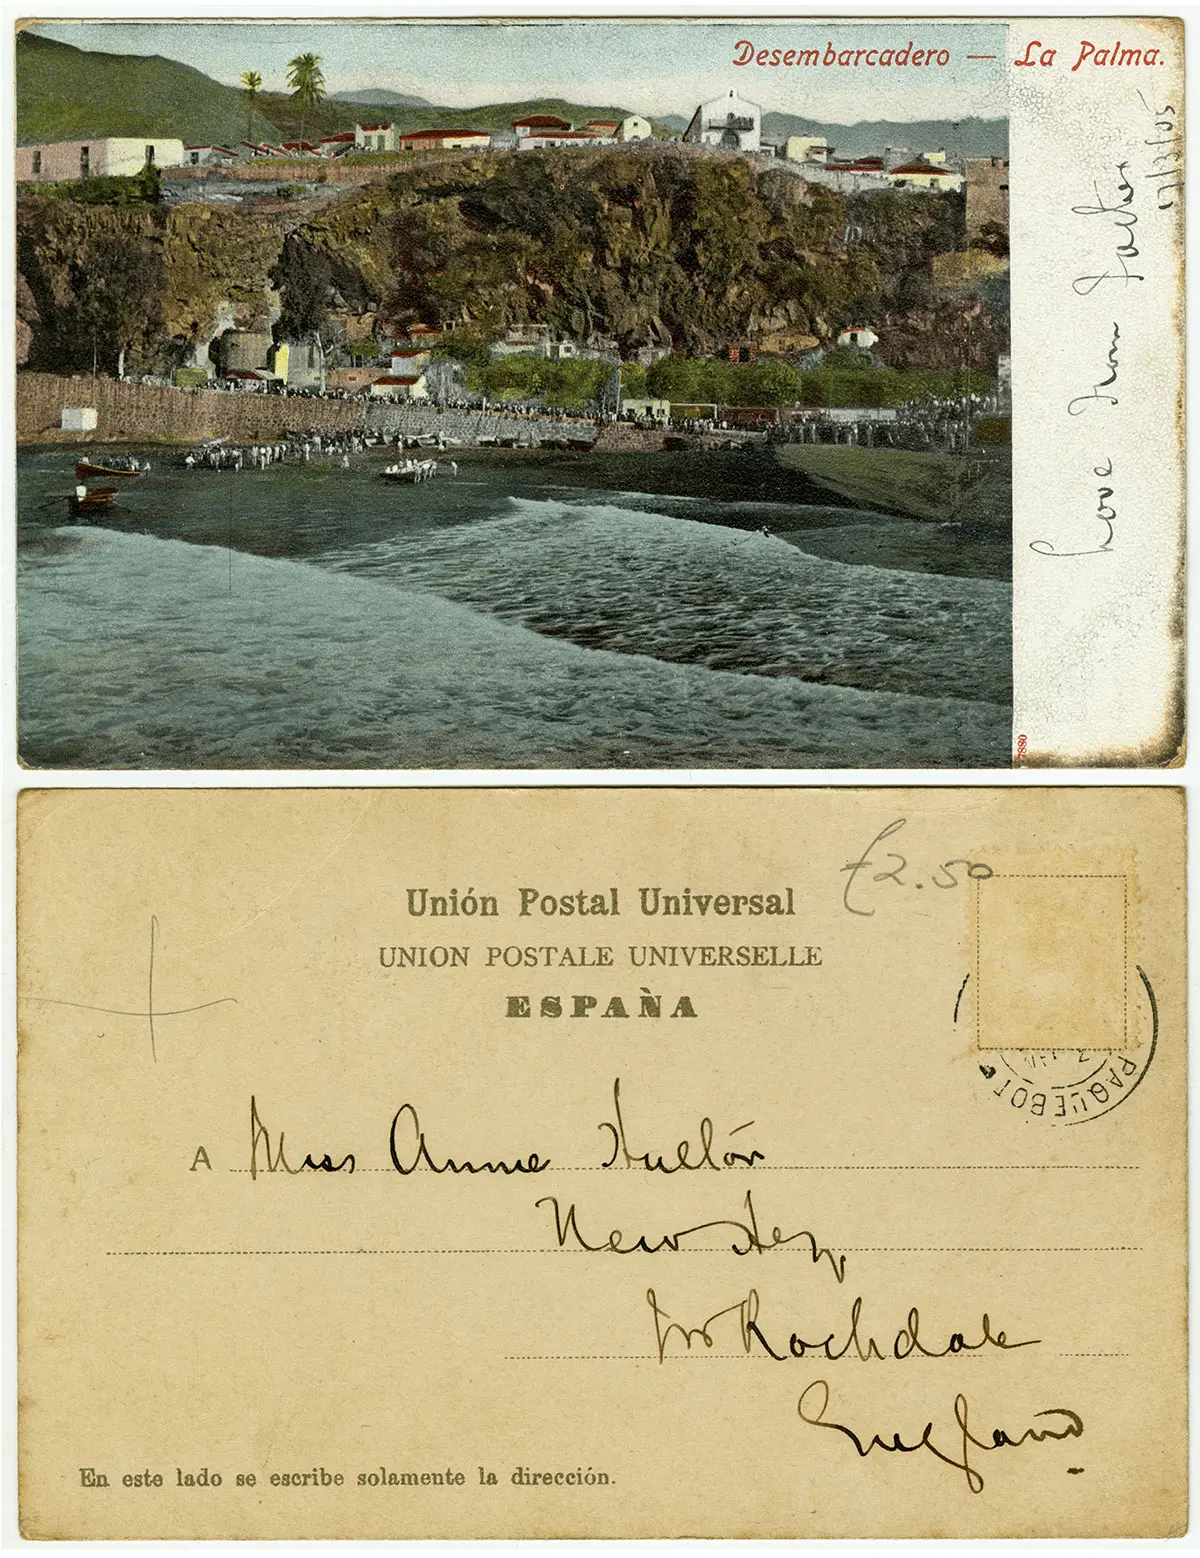 Desembarcadero — La Palma.
Love from Father
17/3/05
7880
£2.50
Unión Postal Universal
UNION POSTALE UNIVERSELLE
ESPAÑA
PAQUEBOT
A Miss Annie Hulton
New Hey
Nr Rochdale
England
En este lado se escribe solamente la dirección.